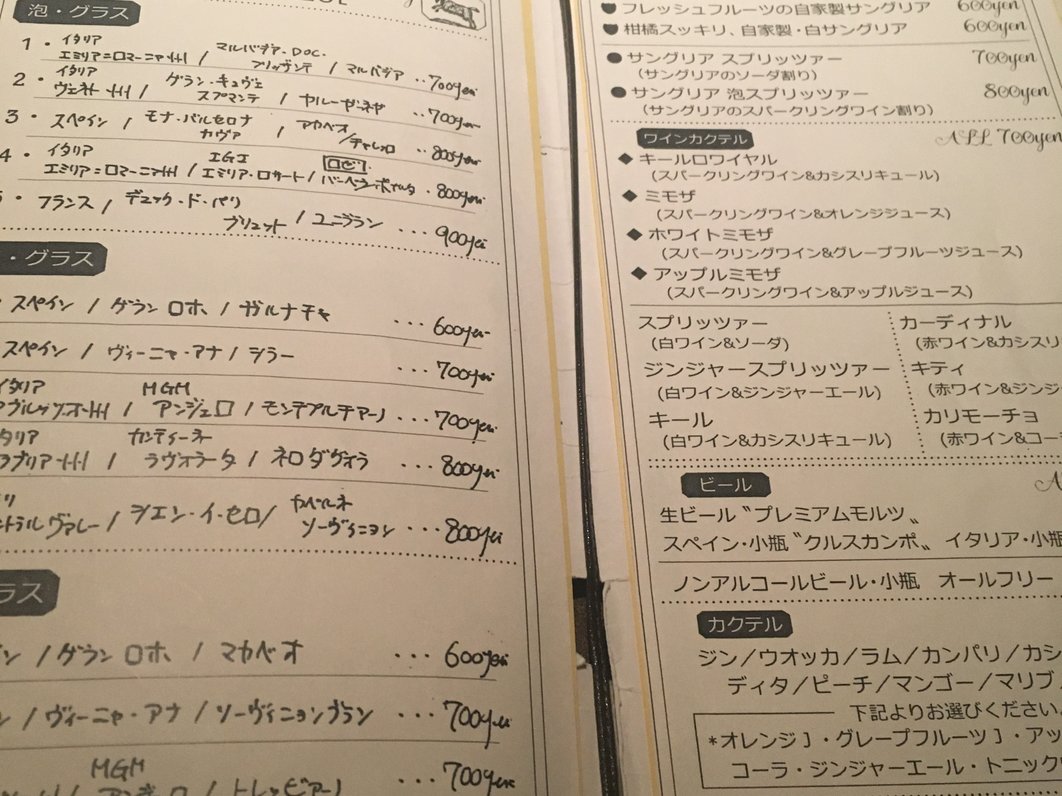 泡・グラス
1・イタリア
エミリア=ロマーニャ州 / マルバヂア・DOC. フリッザンテ / マルバヂア ・・700yen
2・イタリア
ヴェネト州 / グラン・キュヴェ スプマンテ / ・・700yen
3・スペイン / モナ・バルセロナ カヴァ / マカベオ /チャレッロ ・・800yen
4・イタリア
エミリア=ロマーニャ州 / IGI エミリア・ロサート / ロゼ! ・800yen
フランス / デュック・ド・パリ ブリュット / ユニブラン ・・・900yen
・グラス
スペイン / グラン ロホ / ガルナチャ ・・・600yen
スペイン / ヴィーニャ・アナ / シラー ・・・700yen
イタリア
アブルッツォ州 / MGM アンジェロ / モンテプルチアーノ ・・・700yen
タリア
ラブリア州 / カンティーネ ラヴォラータ / ネロダヴォラ ・・・800yen
リ
ントラルヴァレー / シエン・イ・セロ/ カベルネ ソーヴィニョン ・・・800yen
ラス
ン / グラン ロホ / マカベオ ・・・600yen
ン / ヴィーニャ・アナ / ソーヴィニョンブラン ・・・700yen
MGM
アンジェロ / トレッビアーノ ・・・700yen
フレッシュフルーツの自家製サングリア 600yen
柑橘スッキリ、自家製・白サングリア 600yen
● サングリア スプリッツァー 700yen
(サングリアのソーダ割り)
● サングリア 泡スプリッツァー 800yen
(サングリアのスパークリングワイン割り)
ワインカクテル ALL 700yen
◆ キールロワイヤル
(スパークリングワイン&カシスリキュール)
◆ ミモザ
(スパークリングワイン&オレンジジュース)
◆ ホワイトミモザ
(スパークリングワイン&グレープフルーツジュース)
◆ アップルミモザ
(スパークリングワイン&アップルジュース)
スプリッツァー
(白ワイン&ソーダ)
ジンジャースプリッツァー
(白ワイン&ジンジャーエール)
キール
(白ワイン&カシスリキュール)
カーディナル
(赤ワイン&カシスリ
キティ
(赤ワイン&ジンジ
カリモーチョ
(赤ワイン&コー
ビール A
生ビール〝プレミアムモルツ〟
スペイン・小瓶〝クルスカンポ〟 イタリア・小瓶
ノンアルコールビール・小瓶 オールフリー
カクテル
ジン/ウオッカ/ラム/カンパリ/カシ
ディタ/ピーチ/マンゴー/マリブ
下記よりお選びください。
*オレンジJ・グレープフルーツJ・アッ
コーラ・ジンジャーエール・トニック